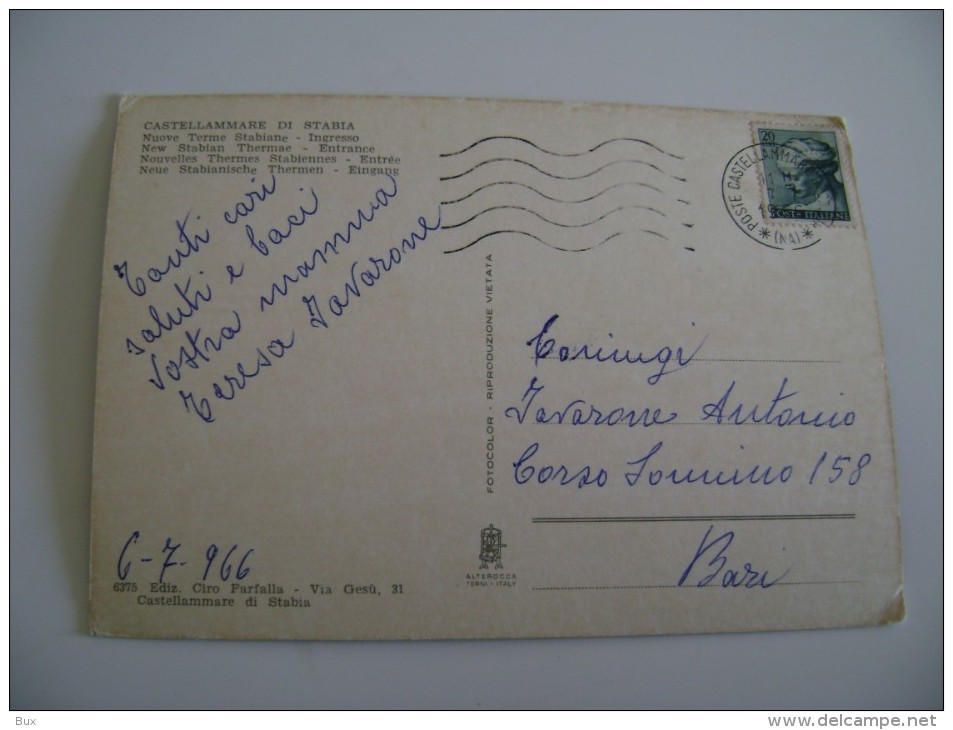 CASTELLAMMARE DI STABIA
Nuove Terme Stabiane - Ingresso
New Stabian Thermae - Entrance
Nouvelles Thermes Stabiennes - Entrée
Neue Stabianische Thermen - Eingang
Tanti cari
saluti e baci
Vostra mamma
Teresa Tavarone
6-7-966
6375 Ediz. Ciro Farfalla - Via Gesù, 31
Castellammare di Stabia
FOTOCOLOR - RIPRODUZIONE VIETATA
ALTEROCCA
TERNI - ITALY
20
POSTE ITALIANE
POSTE CASTELLAMMA
(NA)
Coniugi
Tavarone Antonio
Corso Sonnino 158
Bari
Bux
http://www.delcampe.net